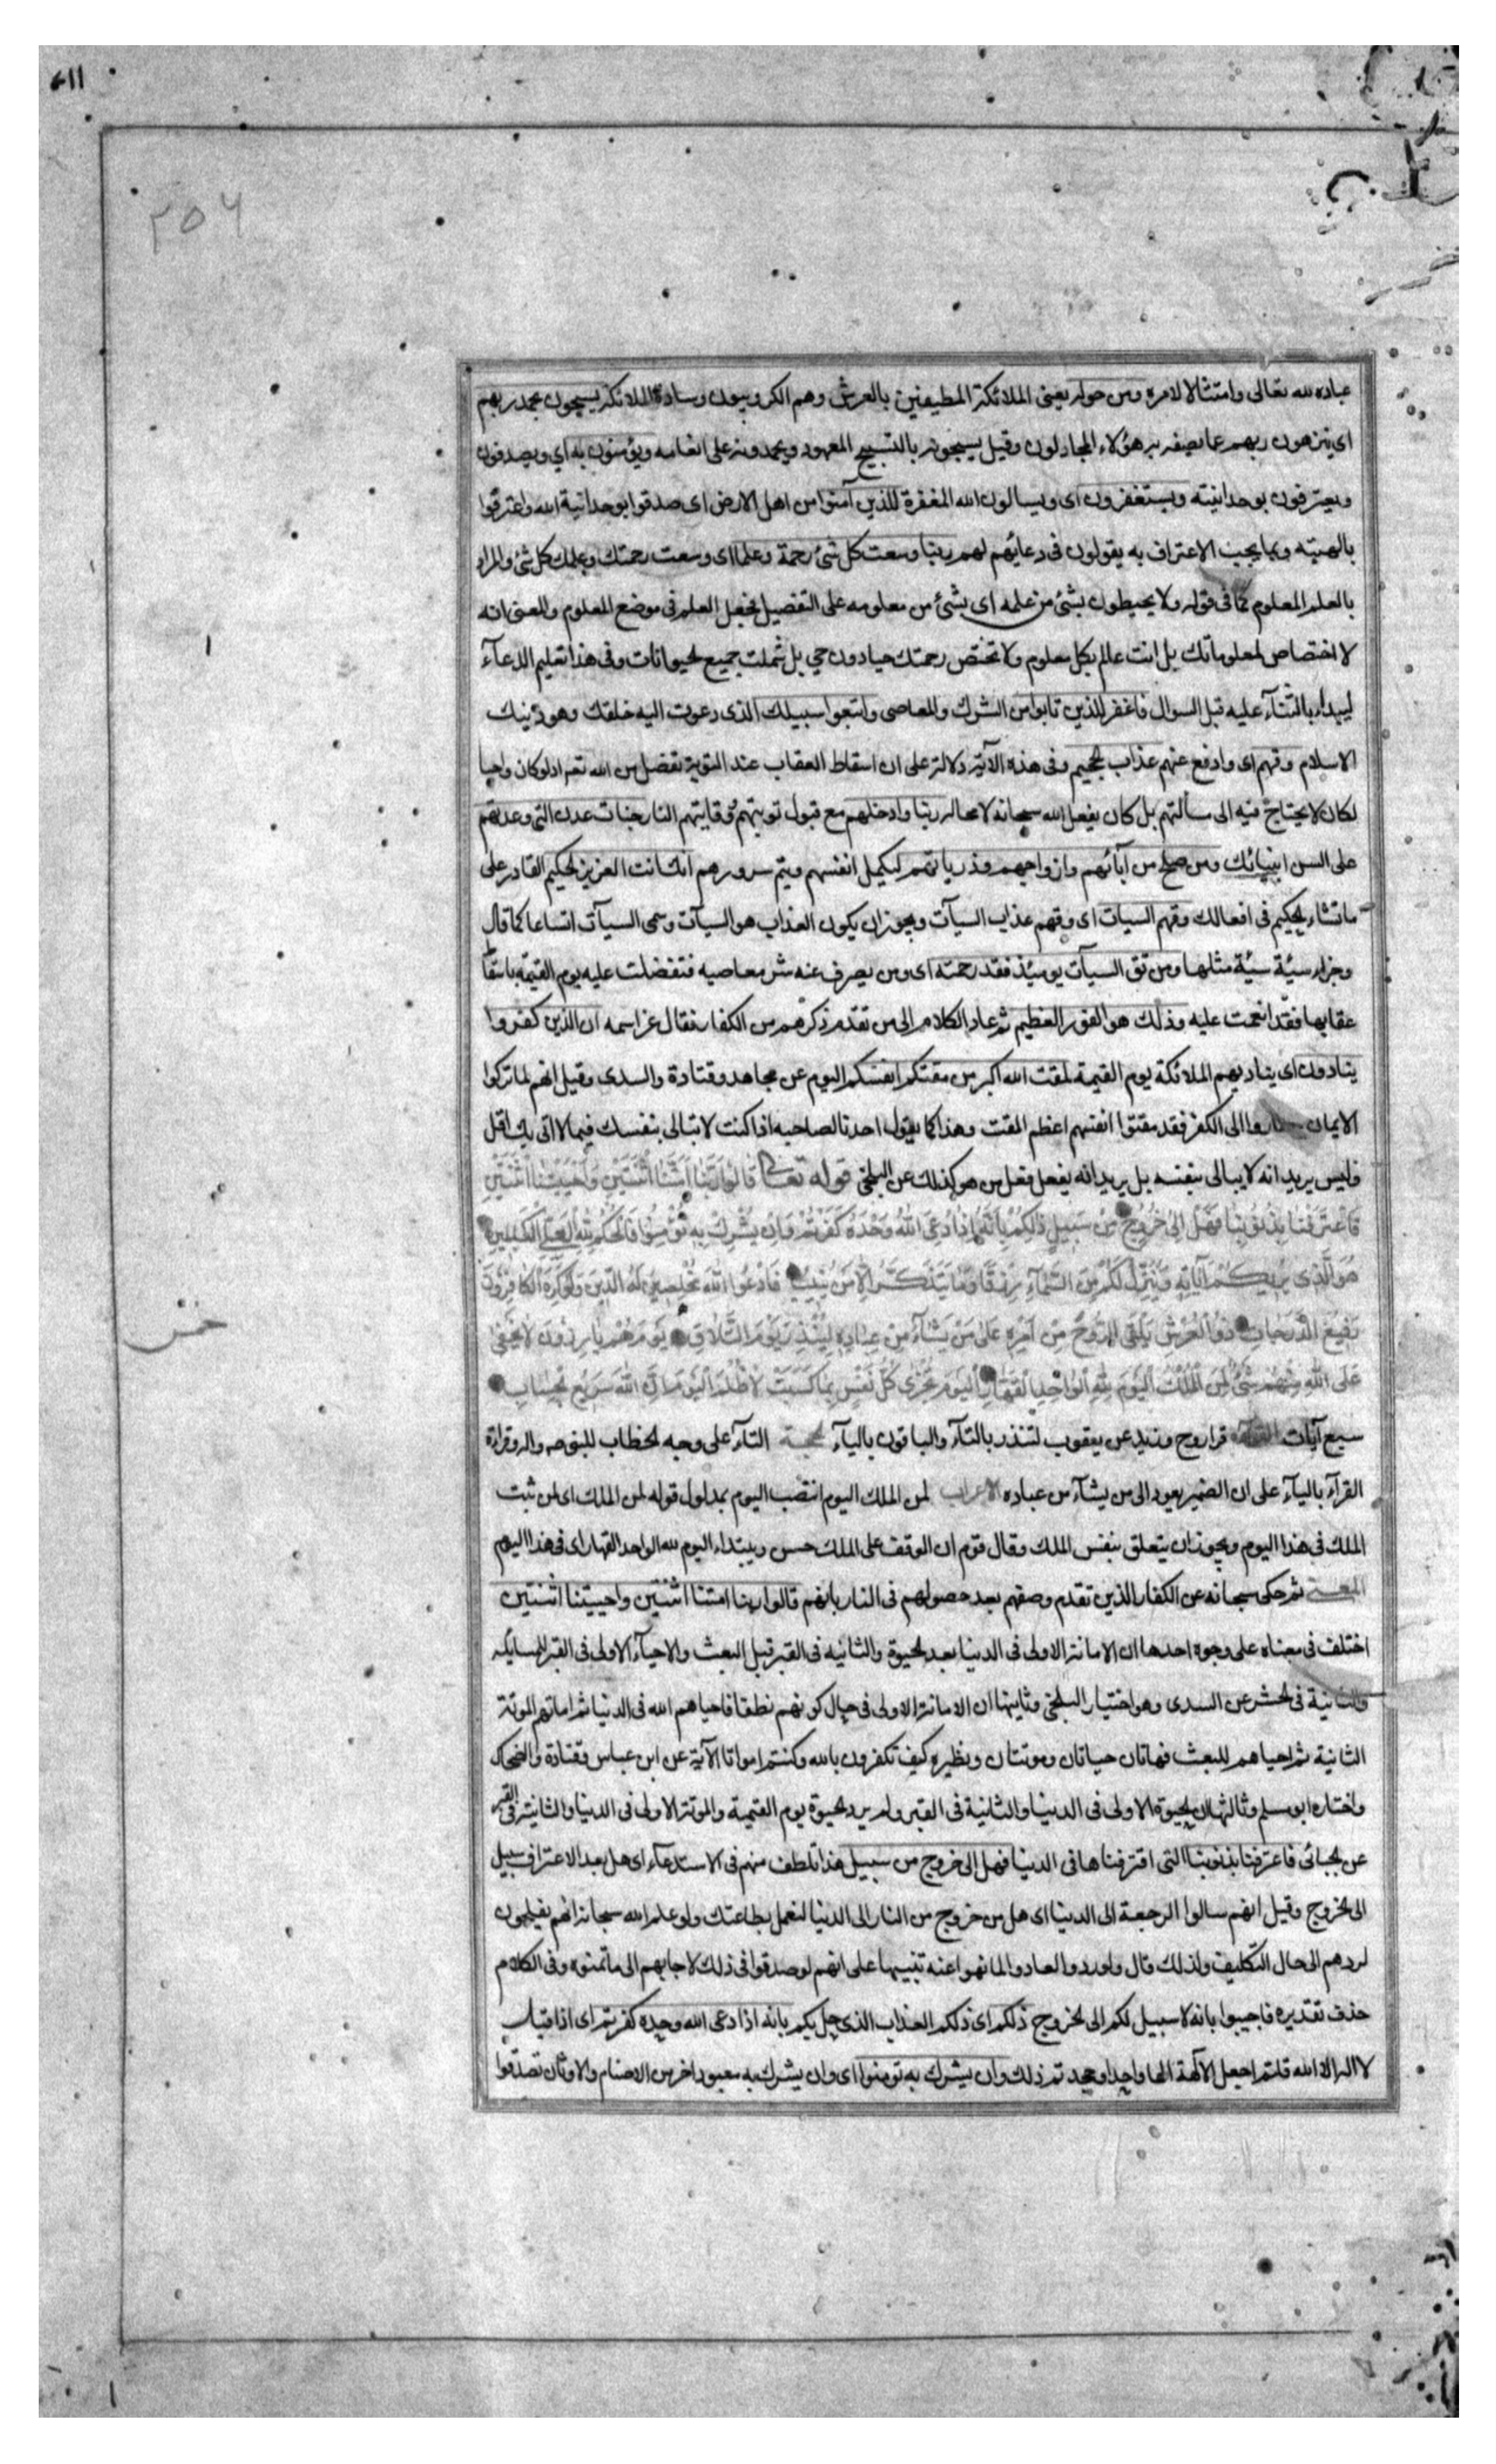 ٢٥٦
عباده لله تعالى وامتثالا لامره ومن حوله يعنى الملائكة المطيفين بالعرش وهم الكروبيون وسادة الملائكة يسبحون بحمد ربهم
اى ينزهون ربهم عما يصفه به هؤلاء المجادلون وقيل يسبحونه بالتسبيح المعهود ويحمدونه على انعامه ويؤمنون به اي ويصدقون
ويعترفون بوحدانيته ويستغفرون اى ويسالون الله المغفرة للذين آمنوا من اهل الارض اى صدقوا بوحدانية الله واعترفوا
بالهيته وبما يجب الاعتراف به يقولون فى دعائهم لهم ربنا وسعت كل شئ رحمة وعلما اى وسعت رحمتك وعلمك كل شئ والمراد
بالعلم المعلوم كما فى قوله ولا يحيطون بشئ من علمه اى بشئ من معلومه على التفصيل فجعل العلم فى موضع المعلوم والمعنى انه
لا اختصاص لمعلوماتك بل انت عالم بكل معلوم ولا تختص رحمتك حيا دون حي بل شملت جميع الحيوانات وفى هذا تعليم الدعآء
ليبداء بالثنآء عليه قبل السوال فاغفر للذين تابوا من الشرك والمعاصى واتبعوا سبيلك الذى دعوت اليه خلقك وهو دينك
الاسلام وقهم اى وادفع عنهم عذاب الجحيم وفى هذه الآية دلالة على ان اسقاط العقاب عند التوبة تفضل من الله تعم اذ لو كان واجبا
لكان لا يحتاج فيه الى مسألتهم بل كان يفعل الله سبحانه لا محاله ربنا وادخلهم مع قبول توبتهم ووقايتهم النار جنات عدن التى وعدتهم
على السن انبيائك ومن صلح من آبائهم وازواجهم وذرياتهم ليكمل انفسهم ويتم سرورهم انك انت العزيز الحكيم القادر على
ما تشاء الحكيم فى افعالك وقهم السيات اى وقهم عذاب السيآت ويجوز ان يكون العذاب هو السيآت وسمى السيآت اتساعا كما قال
وجزاء سيئة سيئة مثلها ومن تق السيآت يومئذ فقد رحمته اى ومن يصرف عنه شر معاصيه فتفضلت عليه يوم القيمة باسقاط
عقابها فقد انعمت عليه وذلك هو الفوز العظيم ثم عاد الكلام الى من تقدم ذكرهم من الكفار فقال عز اسمه ان الذين كفروا
ينادون اى يناديهم الملائكة يوم القيمة لمقت الله اكبر من مقتكم انفسكم اليوم عن مجاهد وقتادة والسدى وقيل انهم لما تركوا
الايمان الى الكفر فقد مقتوا انفسهم اعظم المقت وهذا كما يقول احدنا لصاحبه اذا كنت لا تبالى بنفسك فيما لااتى بك اقل
وليس يريد انه لا يبالى بنفسه بل يريد انه يفعل فعل من هو كذلك عن البلخى قوله تعالى قَالُوا رَبَّنَا أَمَتَّنَا اثْنَتَيْنِ وَأَحْيَيْتَنَا اثْنَتَيْنِ
فَاعْتَرَفْنَا بِذُنُوبِنَا فَهَلْ إِلَى خُرُوجٍ مِنْ سَبِيلٍ ذَلِكُمْ بِأَنَّهُ إِذَا دُعِيَ اللَّهُ وَحْدَهُ كَفَرْتُمْ وَإِنْ يُشْرَكْ بِهِ تُؤْمِنُوا فَالْحُكْمُ لِلَّهِ الْعَلِيِّ الْكَبِيرِ
هُوَ الَّذِي يُرِيكُمْ آيَاتِهِ وَيُنَزِّلُ لَكُمْ مِنَ السَّمَآءِ رِزْقًا وَمَا يَتَذَكَّرُ إِلَّا مَنْ يُنِيبُ فَادْعُوا اللَّهَ مُخْلِصِينَ لَهُ الدِّينَ وَلَوْ كَرِهَ الْكَافِرُونَ
رَفِيعُ الدَّرَجَاتِ ذُو الْعَرْشِ يُلْقِي الرُّوحَ مِنْ أَمْرِهِ عَلَى مَنْ يَشَآءُ مِنْ عِبَادِهِ لِيُنْذِرَ يَوْمَ التَّلَاقِ يَوْمَ هُمْ بَارِزُونَ لَا يَخْفَى
عَلَى اللَّهِ مِنْهُمْ شَيْءٌ لِمَنِ الْمُلْكُ الْيَوْمَ لِلَّهِ الْوَاحِدِ الْقَهَّارِ الْيَوْمَ تُجْزَى كُلُّ نَفْسٍ بِمَا كَسَبَتْ لَا ظُلْمَ الْيَوْمَ إِنَّ اللَّهَ سَرِيعُ الْحِسَابِ
سبع آيات القرآءة قرا روح وزيد عن يعقوب لتنذر بالتآء والباقون باليآء الحجة التآء على وجه الخطاب للنبى ص واله وقراءة
القرآء باليآء على ان الضمير يعود الى من يشآء من عباده الاعراب لمن الملك اليوم انتصب اليوم بمدلول قوله لمن الملك اى لمن ثبت
الملك فى هذا اليوم ويجوز ان يتعلق بنفس الملك وقال قوم ان الوقف على الملك حسن ويبتداء اليوم لله الواحد القهار اى فى هذا اليوم
المعنى ثم حكى سبحانه عن الكفار الذين تقدم وصفهم بعد حصولهم فى النار بانهم قالوا ربنا امتنا اثنتين واحييتنا اثنتين
اختلف فى معناه على وجوه احدها ان الاماتة الاولى فى الدنيا بعد الحيوة والثانيه فى القبر قبل البعث والاحيآء الاولى فى القبر للمسايله
والثانية فى الحشر عن السدى وهو اختيار البلخى وثانيها ان الاماتة الاولى فى حال كونهم نطفا فاحياهم الله فى الدنيا ثم اماتهم الموتة
الثانية ثم احياهم للبعث فهاتان حياتان وموتتان ونظيره كيف تكفرون بالله وكنتم امواتا الآية عن ابن عباس وقتادة والضحاك
واختاره ابو مسلم وثالثها ان الحيوة الاولى فى الدنيا والثانية فى القبر ولم يرد الحيوة يوم القيمة والموتة الاولى فى الدنيا والثانية فى القبر
عن الجبائى فاعترفنا بذنوبنا التى اقترفناها فى الدنيا فهل الى خروج من سبيل هذا تلطف منهم فى الاستدعآء اى هل بعد الاعتراف سبيل
الى الخروج وقيل انهم سالوا الرجعة الى الدنيا اى هل من خروج من النار الى الدنيا لنعمل بطاعتك ولو علم الله سبحانه انهم يفلحون
لردهم الى حال التكليف ولذلك قال ولو ردوا لعادوا لما نهوا عنه تنبيها على انهم لو صدقوا فى ذلك لاجابهم الى ما تمنوه وفى الكلام
حذف تقديره فاجيبوا بانه لا سبيل لكم الى الخروج ذلكم اى ذلكم العذاب الذى حل بكم بانه اذا دعى الله وحده كفرتم اى اذا قيل
لا اله الا الله قلتم اجعل الآلهة الها واحدا وجحدتم ذلك وان يشرك به تومنوا اى وان يشرك به معبود اخر من الاصنام والاوثان تصدقوا